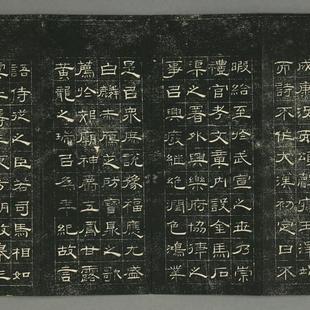 成康沒而頌聲寢王澤竭
而詩不作大漢初定日不
暇給至於武宣之世乃崇
禮官考文章內設金馬石
渠之署外興樂府協律之
事㠯興廢繼絕潤色鴻業
是㠯眾庶說豫福應尤盛
白麟赤雁芝房寶鼎之歌
薦於郊廟神爵五鳳甘露
黃龍之瑞㠯為年紀故言
語侍從之臣若司馬相如
虞丘壽王東方朔枚皋王